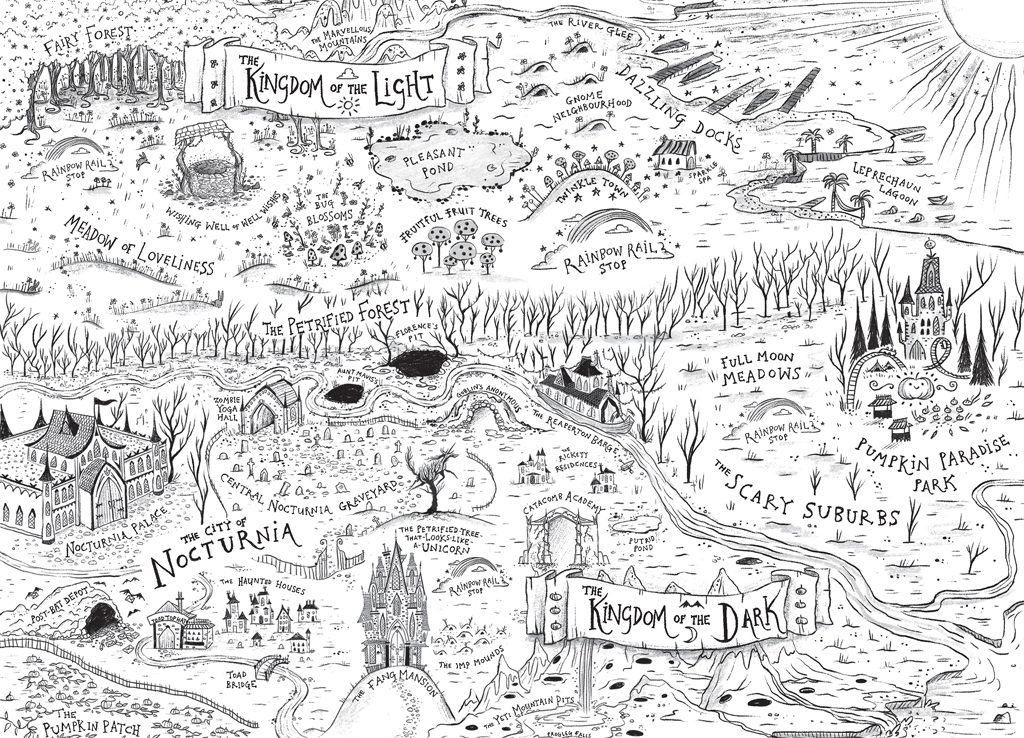 FAIRY FOREST
THE MARVELLOUS
MOUNTAINS
THE RIVER GLEE
THE
KINGDOM OF THE LIGHT
DAZZLING DOCKS
GNOME
NEIGHBOURHOOD
RAINBOW RAIL
STOP
PLEASANT
POND
SPARKLE
SPA
LEPRECHAUN
LAGOON
TWINKLE TOWN
WISHING WELL OF WELL WISHES
THE
BUG
BLOSSOMS
FRUITFUL FRUIT TREES
MEADOW OF LOVELINESS
RAINBOW RAIL
STOP
THE PETRIFIED FOREST
FLORENCE'S
PIT
FULL MOON
MEADOWS
AUNT MAVIS'S
GOBLIN'S ANDENTHOLE
THE REAPERTON BARGE
ZOMBIE
YOGA
HALL
RAINBOW RAIL
STOP
PUMPKIN PARADISE
PARK
THE
RICKETY
RESIDENCES
THE
SCARY SUBURBS
CENTRAL NOCTURNIA GRAVEYARD
CATACOMB ACADEMY
NOCTURNIA PALACE
THE CITY OF
NOCTURNIA
THE PETRIFIED TREE-
THAT-LOOKS-LIKE-
A-UNICORN
PUTRID
POND
RAINBOW RAIL
STOP
THE HAUNTED HOUSES
POST-BAT DEPOT
THE
KINGDOM OF THE DARK
TOAD
BRIDGE
THE FANG MANSION
THE IMP MOUNDS
THE YETI MOUNTAIN PITS
THE
PUMPKIN PATCH